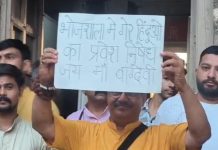 भोजशाला में गैर हिंदुओं
का प्रवेश निषेध
जय माँ वाग्देवी